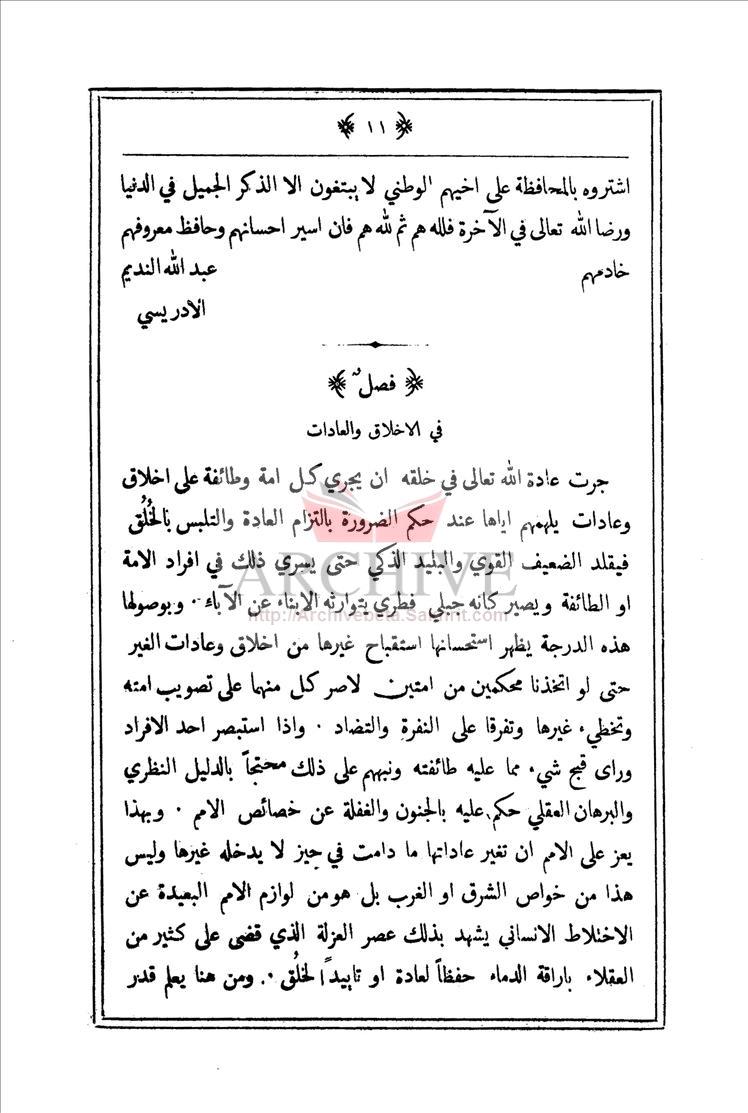 ﴿ ١١ ﴾
اشتروه بالمحافظة على اخيهم الوطني لا يبتغون الا الذكر الجميل في الدنيا
ورضا الله تعالى في الآخرة فلله هم ثم لله هم فان اسير احسانهم وحافظ معروفهم
خادمهم عبد الله النديم
الادريسي
﴿ فصلٌ ﴾
في الاخلاق والعادات
جرت عادة الله تعالى في خلقه ان يجري كل امة وطائفة على اخلاق
وعادات يلهمهم اياها عند حكم الضرورة بالتزام العادة والتلبس بالخُلُق
فيقلد الضعيف القوي والبليد الذكي حتى يسري ذلك في افراد الامة
او الطائفة ويصير كانه جبلي فطري يتوارثه الابناء عن الآباء ٠ وبوصولها
هذه الدرجة يظهر استحسانها استقباح غيرها من اخلاق وعادات الغير
حتى لو اتخذنا محكمين من امتين لاصر كل منهما على تصويب امته
وتخطيء غيرها وتفرقا على النفرة والتضاد ٠ واذا استبصر احد الافراد
وراى قبح شيء مما عليه طائفته ونبههم على ذلك محتجاً بالدليل النظري
والبرهان العقلي حكم عليه بالجنون والغفلة عن خصائص الامم ٠ وبهذا
يعز على الامم ان تغير عاداتها ما دامت في حيز لا يدخله غيرها وليس
هذا من خواص الشرق او الغرب بل هو من لوازم الامم البعيدة عن
الاختلاط الانساني يشهد بذلك عصر العزلة الذي قضى على كثير من
العقلاء باراقة الدماء حفظاً لعادة او تاييداً لخُلُق ٠ ومن هنا يعلم قدر
ARCHIVE
http://Archivebeta.Sakhrit.com